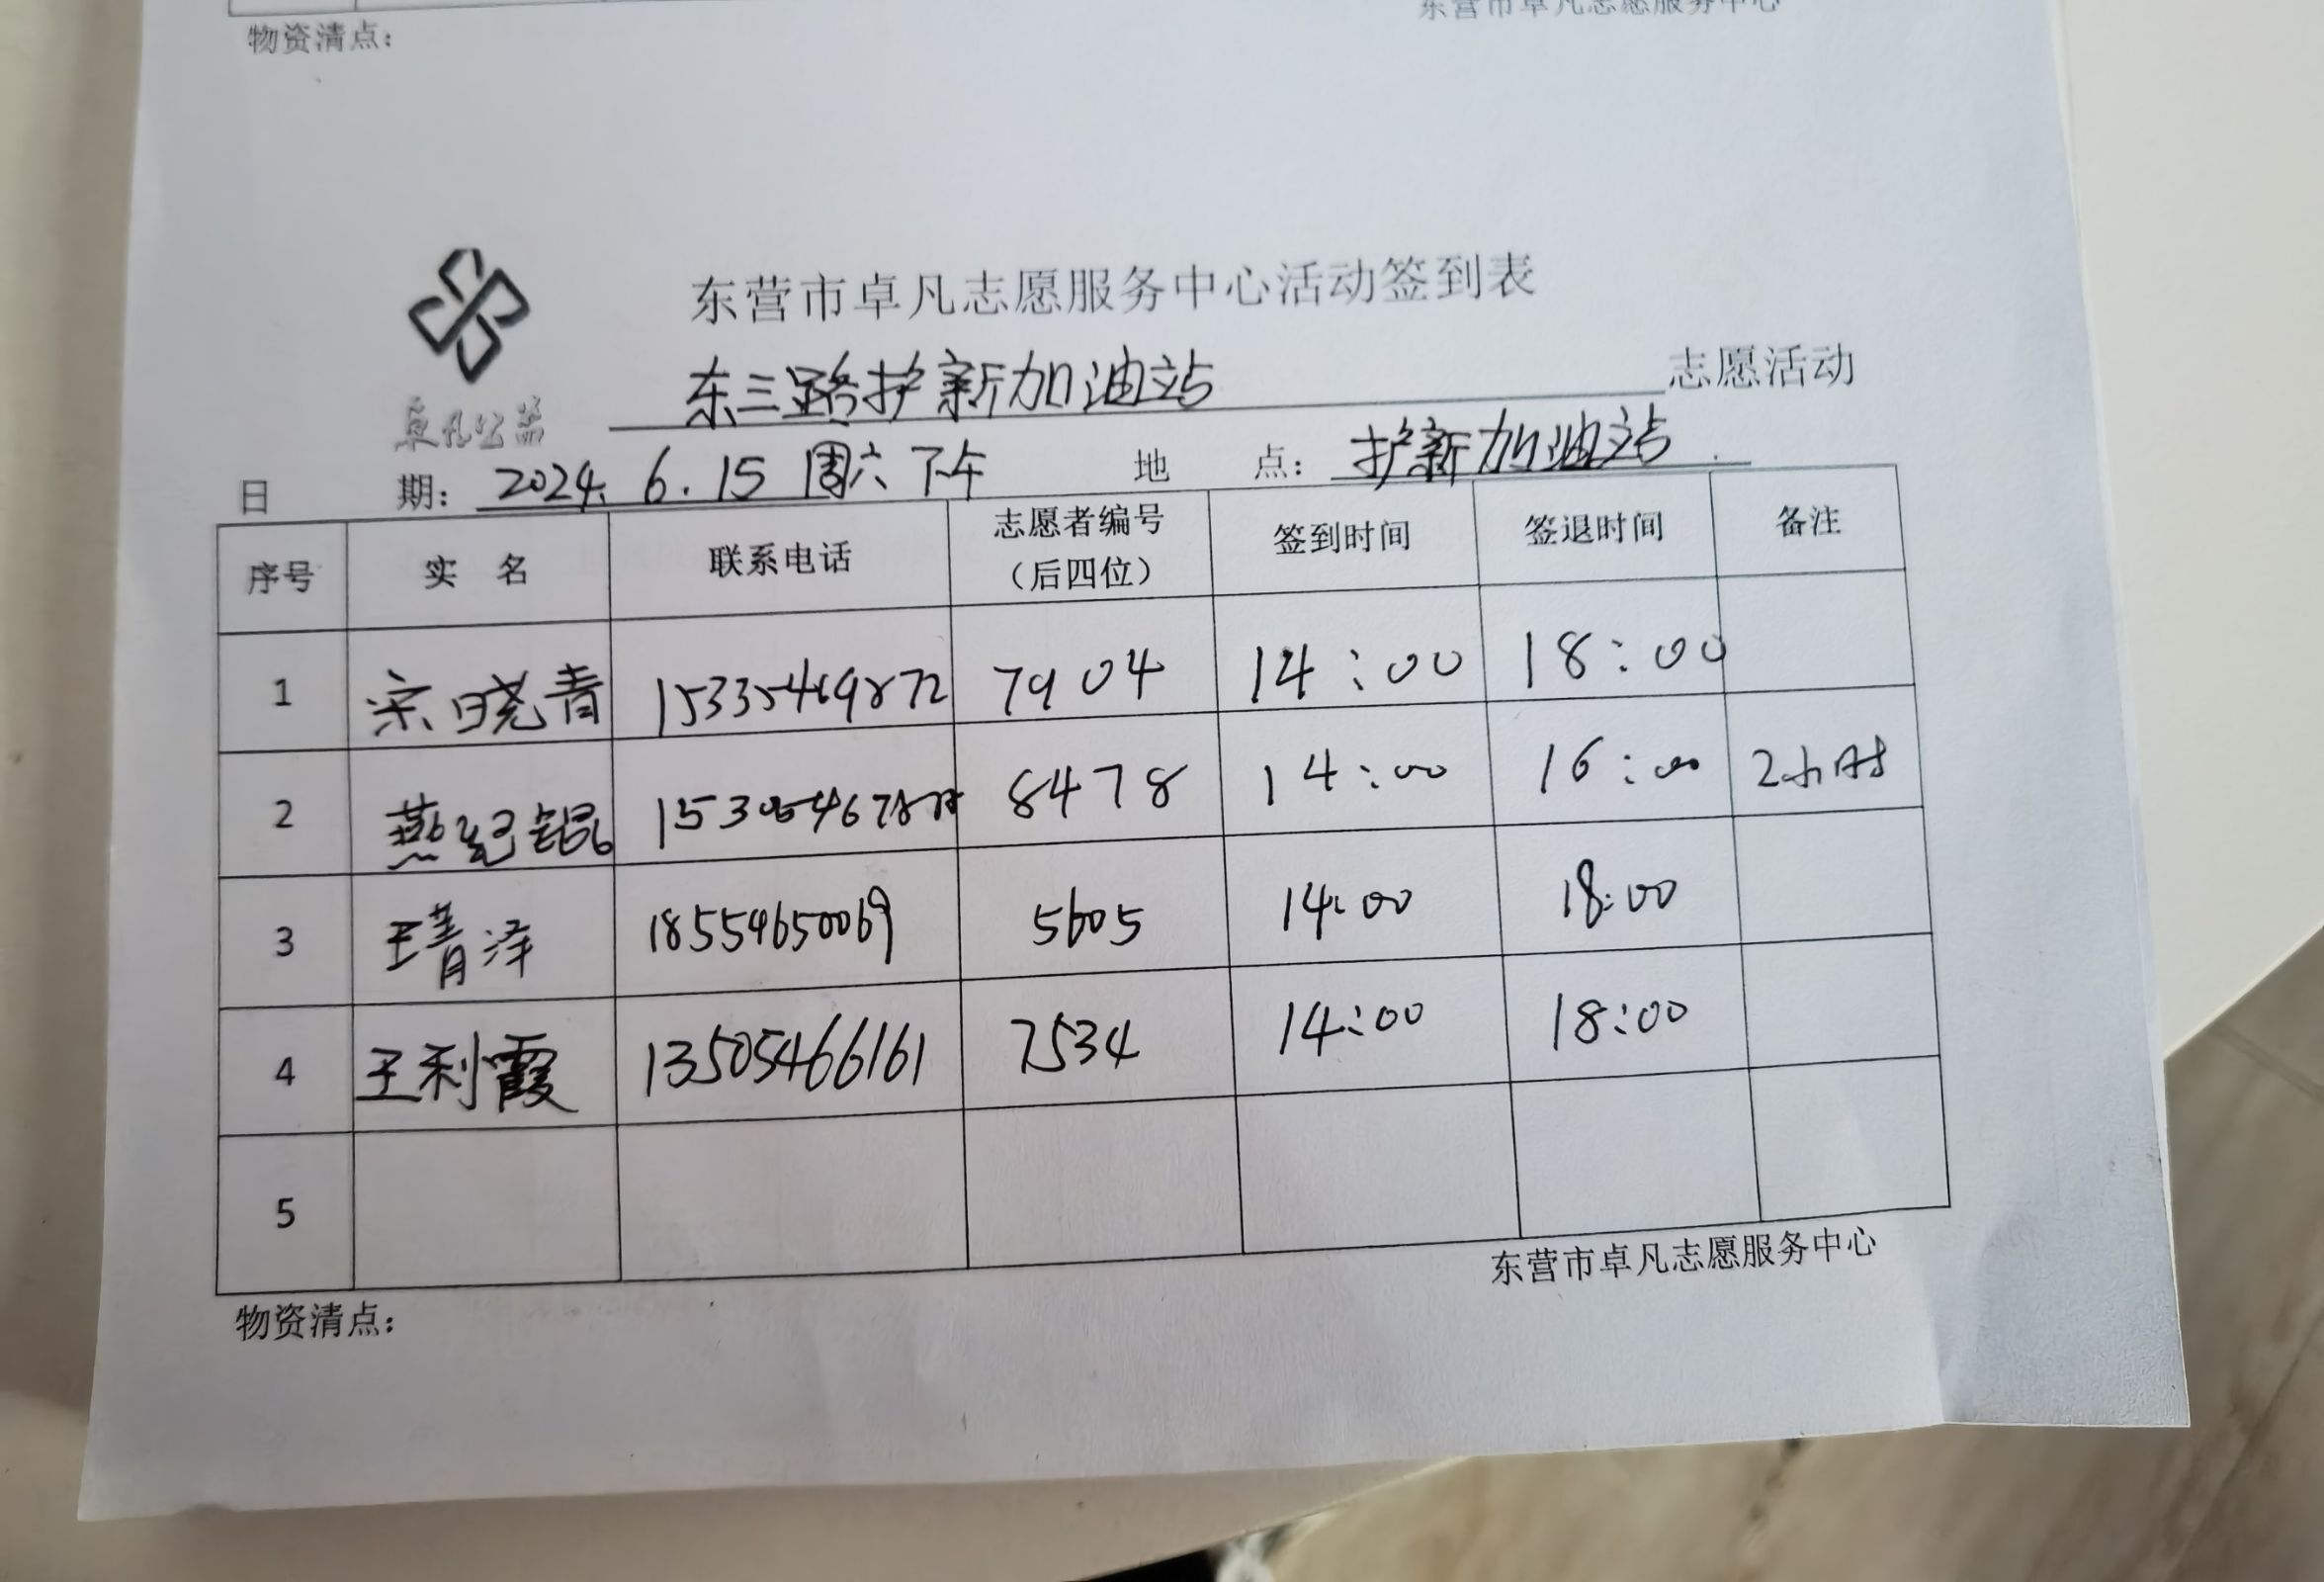 物资清点：
东营市卓凡志愿服务中心
东营市卓凡志愿服务中心活动签到表
卓凡公益
东三路护新加油站 志愿活动
日 期：2024.6.15 周六下午 地 点：护新加油站
序号 实 名 联系电话 志愿者编号（后四位） 签到时间 签退时间 备注
1 宗晓青 15335469872 7904 14:00 18:00
2 燕纪锟 8478 14:00 16:00 2小时
3 王菁泽 18554650069 5605 14:00 18:00
4 王利霞 13505466161 7534 14:00 18:00
5
东营市卓凡志愿服务中心
物资清点：